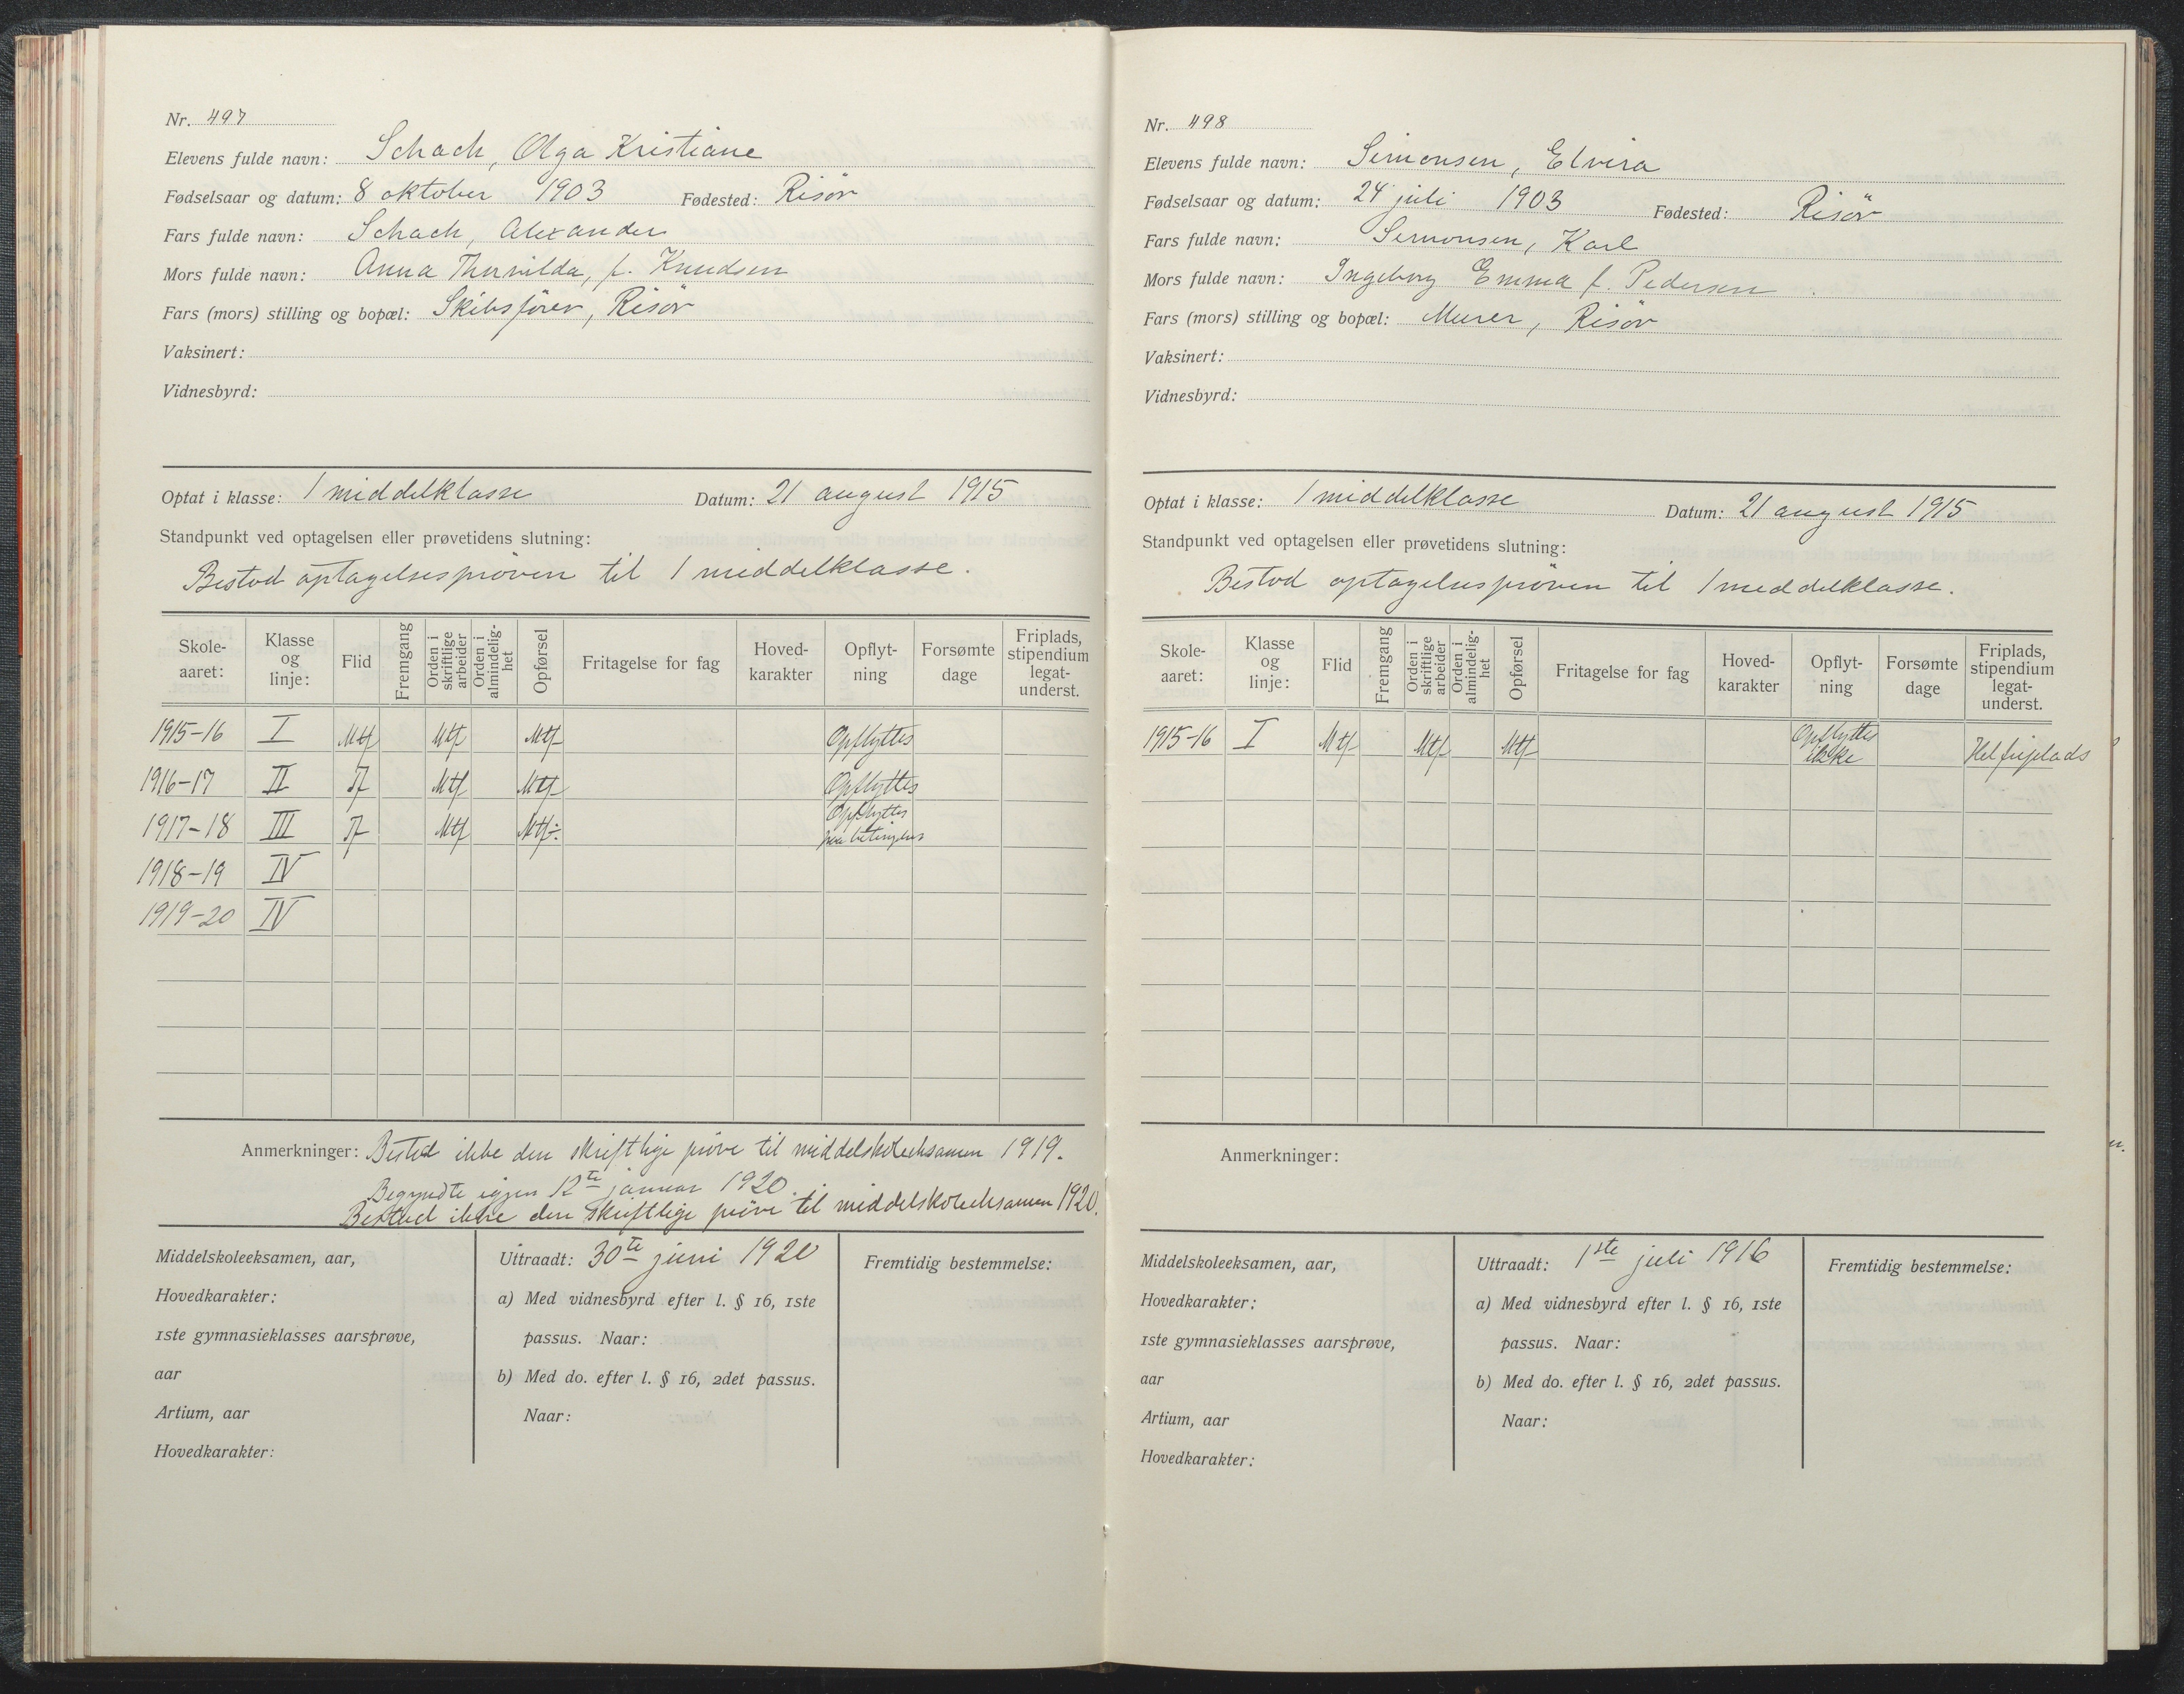 Nr. 497
Elevens fulde navn: Schach, Olga Kristiane
Fødselsaar og datum: 8 oktober 1903 Fødested: Risör
Fars fulde navn: Schach, Alexander
Mors fulde navn: Anna Thorvilda, f. Knudsen
Fars (mors) stilling og bopæl: Skibsförer, Risör
Vaksinert:
Vidnesbyrd:
Optat i klasse: 1 middelklasse Datum: 21 august 1915
Standpunkt ved optagelsen eller prøvetidens slutning:
Bestod optagelsespröven til 1 middelklasse.
Skole-aaret: Klasse og linje: Flid Fremgang Orden i skriftlige arbeider Orden i almindelig-het Opførsel Fritagelse for fag Hoved-karakter Opflyt-ning Forsømte dage Friplads, stipendium legat-underst.
1915-16 I Mtf Mtf Mtf Opflyttes
1916-17 II Tf Mtf Mtf Opflyttes
1917-18 III Tf Mtf Mtf÷ Opflyttes paa betingelser
1918-19 IV
1919-20 IV
Anmerkninger: Bestod ikke den skriftlige pröve til middelskoleeksamen 1919.
Begyndte igjen 12te januar 1920.
Bestod ikke den skriftlige pröve til middelskoleeksamen 1920.
Middelskoleeksamen, aar,
Hovedkarakter:
1ste gymnasieklasses aarsprøve,
aar
Artium, aar
Hovedkarakter:
Uttraadt: 30te juni 1920
a) Med vidnesbyrd efter l. § 16, 1ste
passus. Naar:
b) Med do. efter l. § 16, 2det passus.
Naar:
Fremtidig bestemmelse:
Nr. 498
Elevens fulde navn: Simonsen, Elvira
Fødselsaar og datum: 24 juli 1903 Fødested: Risör
Fars fulde navn: Simonsen, Karl
Mors fulde navn: Ingeborg Emma f. Pedersen
Fars (mors) stilling og bopæl: Murer, Risör
Vaksinert:
Vidnesbyrd:
Optat i klasse: 1 middelklasse Datum: 21 august 1915
Standpunkt ved optagelsen eller prøvetidens slutning:
Bestod optagelsespröven til 1 middelklasse.
Skole-aaret: Klasse og linje: Flid Fremgang Orden i skriftlige arbeider Orden i almindelig-het Opførsel Fritagelse for fag Hoved-karakter Opflyt-ning Forsømte dage Friplads, stipendium legat-underst.
1915-16 I Mtf Mtf Mtf Opflyttes ikke Hel friplads
Anmerkninger:
Middelskoleeksamen, aar,
Hovedkarakter:
1ste gymnasieklasses aarsprøve,
aar
Artium, aar
Hovedkarakter:
Uttraadt: 1ste juli 1916
a) Med vidnesbyrd efter l. § 16, 1ste
passus. Naar:
b) Med do. efter l. § 16, 2det passus.
Naar:
Fremtidig bestemmelse: